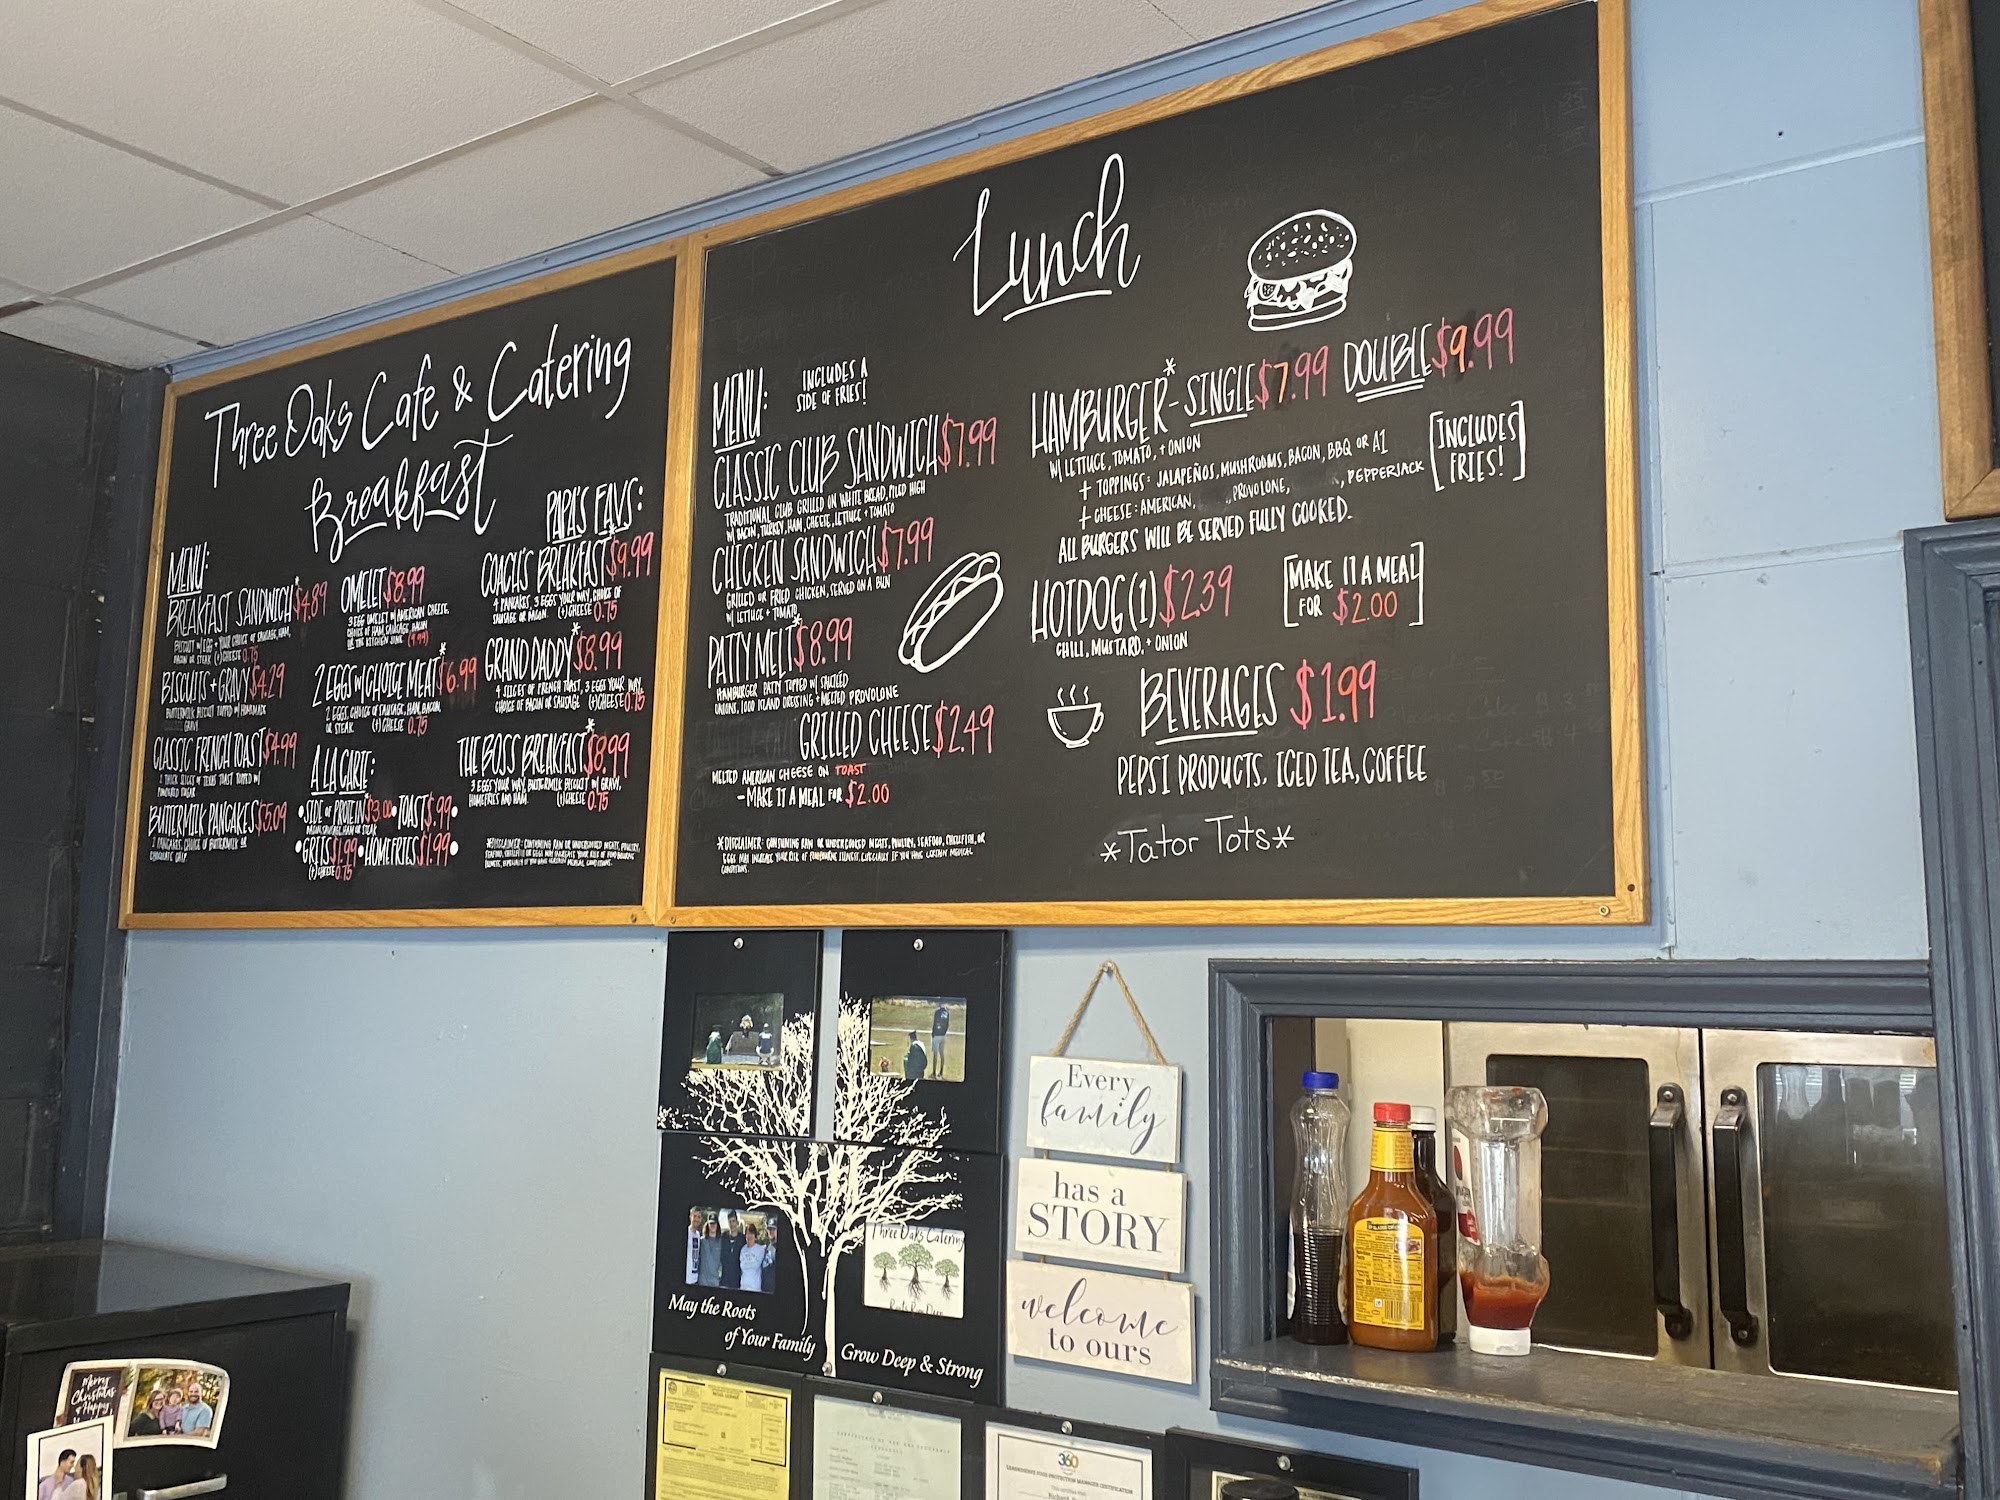 Three Oaks Cafe & Catering
Breakfast
MENU:
BREAKFAST SANDWICH* $4.89
BISCUIT W/ EGG + YOUR CHOICE OF SAUSAGE, HAM,
BACON OR STEAK (+) CHEESE 0.75
BISCUITS + GRAVY $4.29
BUTTERMILK BISCUIT TOPPED W/ HOMEMADE
GRAVY
CLASSIC FRENCH TOAST $4.99
2 THICK SLICES OF TEXAS TOAST TOPPED W/
POWDERED SUGAR
BUTTERMILK PANCAKES $5.09
2 PANCAKES, CHOICE OF BUTTERMILK OR
CHOCOLATE CHIP
OMELET $8.99
3 EGG OMELET W/ AMERICAN CHEESE,
CHOICE OF HAM, SAUSAGE, BACON
OR THE KITCHEN SINK (9.99)
2 EGGS W/ CHOICE MEAT* $6.99
2 EGGS, CHOICE OF SAUSAGE, HAM, BACON,
OR STEAK (+) CHEESE 0.75
A LA CARTE:
• SIDE OF PROTEIN* $3.00 • TOAST $.99 •
BACON, SAUSAGE, HAM OR STEAK
• GRITS $1.99 • HOMEFRIES $1.99 •
(+) CHEESE 0.75
PAPA'S FAVS:
COACH'S BREAKFAST* $9.99
4 PANCAKES, 3 EGGS YOUR WAY, CHOICE OF
SAUSAGE OR BACON. (+) CHEESE 0.75
GRAND DADDY* $8.99
4 SLICES OF FRENCH TOAST, 3 EGGS YOUR WAY,
CHOICE OF BACON OR SAUSAGE (+) CHEESE 0.75
THE BOSS BREAKFAST* $8.99
3 EGGS YOUR WAY, BUTTERMILK BISCUIT W/ GRAVY,
HOMEFRIES AND HAM. (+) CHEESE 0.75
*DISCLAIMER: CONSUMING RAW OR UNDERCOOKED MEATS, POULTRY,
SEAFOOD, SHELLFISH OR EGGS MAY INCREASE YOUR RISK OF FOODBOURNE
ILLNESS, ESPECIALLY IF YOU HAVE CERTAIN MEDICAL CONDITIONS.
Lunch
MENU:
INCLUDES A
SIDE OF FRIES!
CLASSIC CLUB SANDWICH $7.99
TRADITIONAL CLUB GRILLED ON WHITE BREAD, PILED HIGH
W/ BACON, TURKEY, HAM, CHEESE, LETTUCE + TOMATO
CHICKEN SANDWICH $7.99
GRILLED OR FRIED CHICKEN, SERVED ON A BUN
W/ LETTUCE + TOMATO
PATTY MELT* $8.99
HAMBURGER PATTY TOPPED W/ SAUTEED
ONIONS, 1000 ISLAND DRESSING + MELTED PROVOLONE
GRILLED CHEESE $2.49
MELTED AMERICAN CHEESE ON TOAST
- MAKE IT A MEAL FOR $2.00
*DISCLAIMER: CONSUMING RAW OR UNDERCOOKED MEATS, POULTRY, SEAFOOD, SHELLFISH, OR
EGGS MAY INCREASE YOUR RISK OF FOODBOURNE ILLNESS, ESPECIALLY IF YOU HAVE CERTAIN MEDICAL
CONDITIONS.
HAMBURGER* - SINGLE $7.99 DOUBLE $9.99
W/ LETTUCE, TOMATO, + ONION
+ TOPPINGS: JALAPEÑOS, MUSHROOMS, BACON, BBQ OR A1
+ CHEESE: AMERICAN, PROVOLONE, , PEPPERJACK
[INCLUDES
FRIES!]
ALL BURGERS WILL BE SERVED FULLY COOKED.
HOTDOG (1) $2.39
CHILI, MUSTARD, + ONION
[MAKE IT A MEAL
FOR $2.00]
BEVERAGES $1.99
PEPSI PRODUCTS, ICED TEA, COFFEE
*Tator Tots*
Three Oaks Catering
Roots Run Deep
May the Roots
of Your Family
Grow Deep & Strong
Every
family
has a
STORY
welcome
to ours
Merry
Christmas
& Happy
360